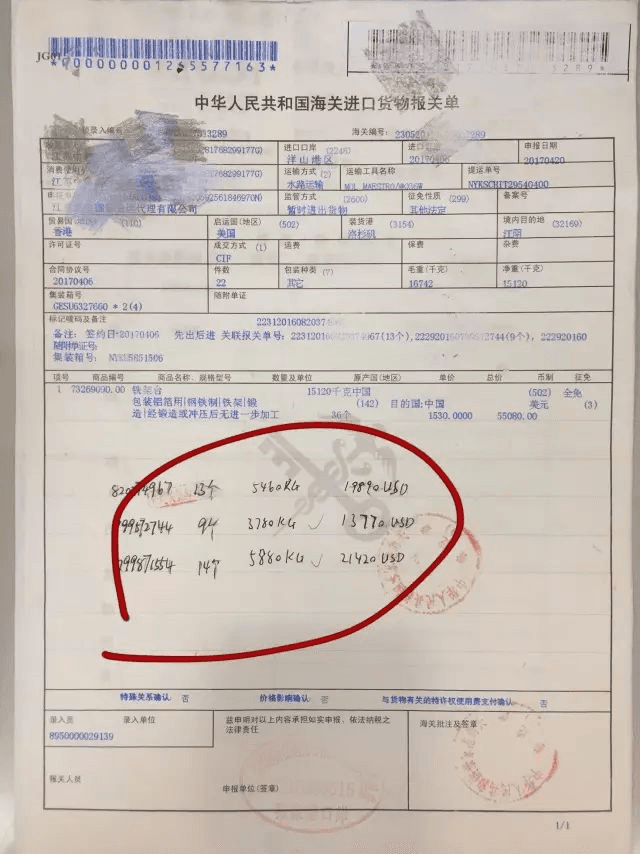 *000000001245577163*
中华人民共和国海关进口货物报关单
海关编号:
进口口岸 (2248)
洋山港区
进口日期
20170406
申报日期
20170420
运输方式(2)
水路运输
运输工具名称
提运单号
NYKSCMIT29540400
监管方式 (2600)
暂时进出货物
征免性质 (299)
其他法定
备案号
贸易国(地区) (110)
香港
启运国(地区) (502)
美国
装货港 (3154)
洛杉矶
境内目的地 (32169)
江阴
许可证号
成交方式 (1)
CIF
运费
保费
杂费
合同协议号
20170406
件数
22
包装种类 (7)
其它
毛重(千克)
16742
净重(千克)
15120
集装箱号
GESU6327660 * 2(4)
随附单证
标记唛码及备注
备注: 签约日:20170406 先出后进 关联报关单号:
随附单证号:
集装箱号:
项号 商品编号 商品名称、规格型号 数量及单位 原产国(地区) 单价 总价 币制 征免
1 73269090.00 铁架台 15120千克中国 (502) 全免
包装铝箔用|钢铁制|铁架|锻 (142) 目的国:中国 美元 (3)
造|经锻造或冲压后无进一步加工 36个 1530.0000 55080.00
820374967 13个 5460KG 19890USD
9个 3780KG ✓ 13770USD
14个 5880KG ✓ 21420USD
特殊关系确认: 否 价格影响确认: 否 与货物有关的特许权使用费支付确认: 否
录入员 录入单位
8950000029139
兹申明对以上内容承担如实申报、依法纳税之
法律责任
海关批注及签章
报关人员
申报单位(签章)
1/1